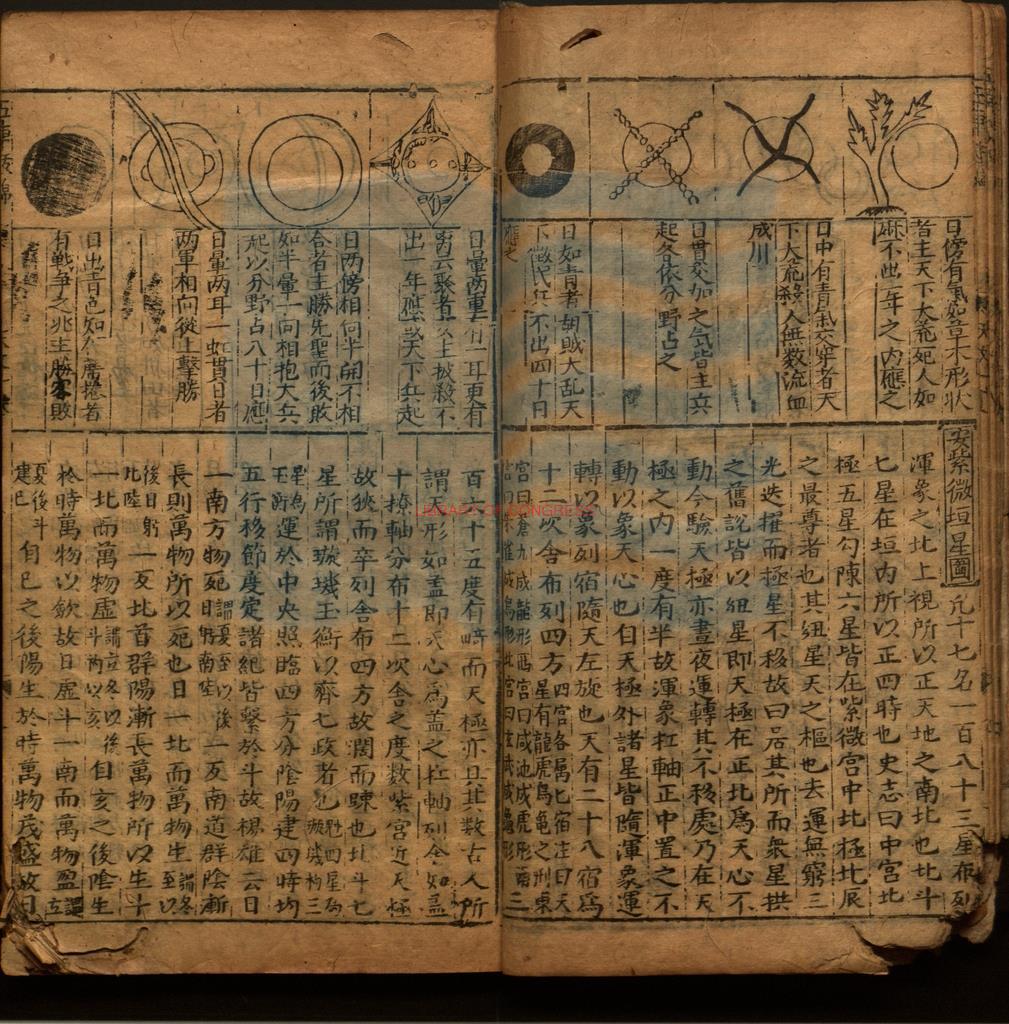 日傍有氣如草木形狀
者主天下大荒死人如
麻不出一年之內應之
日中有青氣交穿者天
下大荒殺人無数流血
成川
日貫交加之気皆主兵
起各依分野占之
日如青者朝賊大乱天
下徵代兵不出四十日
應之
日暈两重
出一年應
天下兵起
日两傍相向半開不相
合者主勝先聖而後敗
如半暈一向相抱大兵
起以分野占八十日應
日暈两耳一虹貫日者
两軍相向從上擊勝
日出青色如
者
有戦争之兆主勝客敗
安紫微垣星圖 凡十七名一百八十三星布列
渾象之北上視所以正天地之南北也北斗
七星在垣內所以正四時也史志曰中宮北
極五星勾陳六星皆在紫微宮中北極北辰
之最尊者也其紐星天之樞也去運無窮三
光迭擢而極星不移故曰居其所而衆星拱
之舊說皆以紐星即天極在正北為天心不
動今驗天極亦晝夜運轉其不移處乃在天
極之內一度有半故渾象杠軸正中置之不
動以象天心也自天極外諸星皆隨渾象運
轉以象列宿隨天左旋也天有二十八宿為
十二次舍布列四方 四宮各属七宿注曰天
星有龍虎鳥龜之形東
宮曰蒼 成龍形西宮曰咸池成虎形南
宮曰朱雀成鳥形北宮曰玄武成龜形 三
百六十五度有畸而天極亦且其数古人所
謂天形如盖即天心為盖之杠軸列舍如盖
十撩軸分布十二次舍之度数紫宮近天極
故狹而卒列舍布四方故濶而踈也北斗七
星所謂璇璣玉衡以齊七政者也
運於中央照臨四方分陰陽建四時均
五行移節度定諸紀皆繋於斗故楊雄云日
一南方物死 謂夏至以後
日躔南陸 一反南道群陰漸
長則萬物所以死也日一北而萬物生 謂冬至以
後日躬
北陸 一反北首群陽漸長萬物所以生斗
一北而萬物虚 謂立冬以後
斗柄以亥 自亥之後陰生
於時萬物以歛故日虚斗一南而萬物盈 謂立
夏後斗
建巳 自巳之後陽生於時萬物茂盛故日
LIBRARY OF CONGRESS